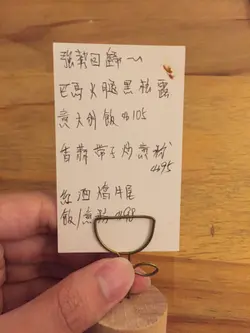 強勢回歸~
巴馬火腿黑松露
意大利飯 $105
香蒜帶子炒意粉
$95
紅酒燴牛尾
飯/意粉 $98